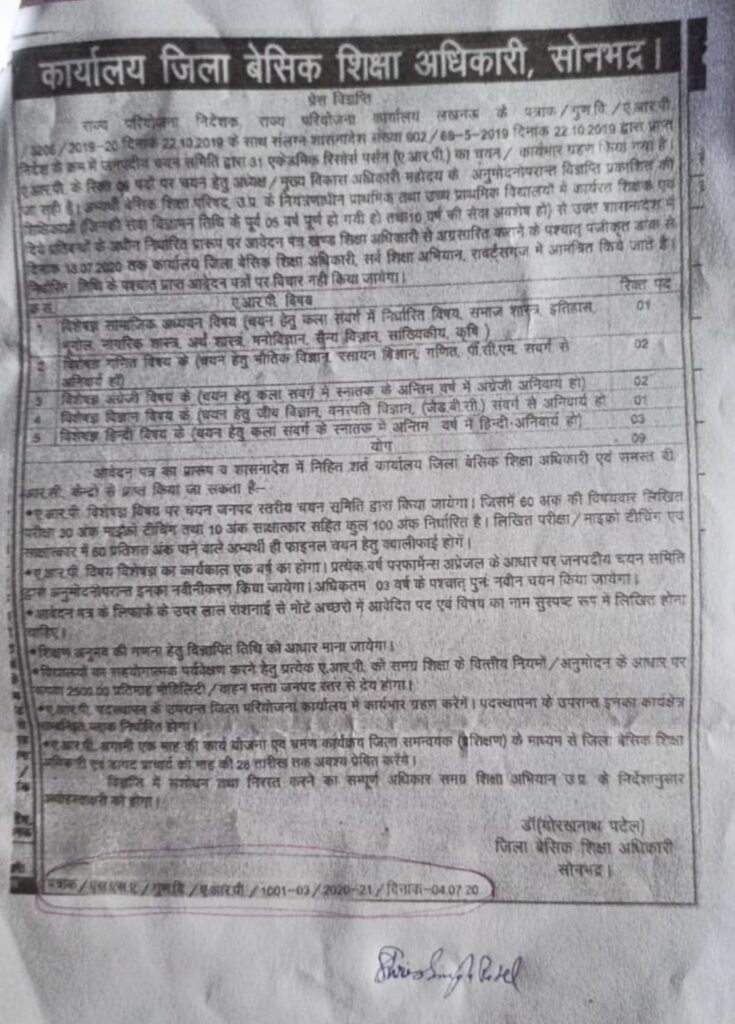 कार्यालय जिला बेसिक शिक्षा अधिकारी, सोनभद्र।
प्रेस विज्ञप्ति
राज्य परियोजना निदेशक, राज्य परियोजना कार्यालय लखनऊ के पत्रांक/गुण.वि/ए.आर.पी.
/2019-20 दिनांक 22.10.2019 के साथ संलग्न शासनादेश संख्या 902/68-5-2019 दिनांक 22.10.2019 द्वारा प्राप्त
निर्देश के क्रम में जनपदीय चयन समिति द्वारा 31 एकेडमिक रिसोर्स पर्सन (ए.आर.पी.) का चयन/कार्यभार ग्रहण किया गया है।
ए.आर.पी. के रिक्त 09 पदों पर चयन हेतु अध्यक्ष/मुख्य विकास अधिकारी महोदय के अनुमोदनोपरान्त विज्ञप्ति प्रकाशित की
जा रही है। अभ्यर्थी बेसिक शिक्षा परिषद, उ.प्र. के नियंत्रणाधीन प्राथमिक तथा उच्च प्राथमिक विद्यालयों में कार्यरत शिक्षक एवं
(जिनकी सेवा विज्ञापन तिथि के पूर्व 05 वर्ष पूर्ण हो गयी हो तथा 10 वर्ष की सेवा अवशेष हो) से उक्त शासनादेश में
दिये प्रतिबन्धों के अधीन निर्धारित प्रारूप पर आवेदन पत्र खण्ड शिक्षा अधिकारी से अग्रसारित कराने के पश्चात् पंजीकृत डाक से
दिनांक 13.07.2020 तक कार्यालय जिला बेसिक शिक्षा अधिकारी, सर्व शिक्षा अभियान, राबर्ट्सगंज में आमंत्रित किये जाते है।
निर्धारित तिथि के पश्चात् प्राप्त आवेदन पत्रों पर विचार नहीं किया जायेगा।
क्र.सं. ए.आर.पी. विषय रिक्त पद
1 विशेषज्ञ सामाजिक अध्ययन विषय (चयन हेतु कला संवर्ग में निर्धारित विषय, समाज शास्त्र, इतिहास, 01
भूगोल, नागरिक शास्त्र, अर्थ शास्त्र, मनोविज्ञान, सैन्य विज्ञान, सांख्यिकीय, कृषि)
2 विशेषज्ञ गणित विषय के (चयन हेतु भौतिक विज्ञान, रसायन विज्ञान, गणित, पी.सी.एम. संवर्ग से 02
अनिवार्य हो)
3 विशेषज्ञ अंग्रेजी विषय के (चयन हेतु कला संवर्ग में स्नातक के अन्तिम वर्ष में अंग्रेजी अनिवार्य हो) 02
4 विशेषज्ञ विज्ञान विषय के (चयन हेतु जीव विज्ञान, वनस्पति विज्ञान, (जेड.बी.सी.) संवर्ग से अनिवार्य हो 01
5 विशेषज्ञ हिन्दी विषय के (चयन हेतु कला संवर्ग के स्नातक में अन्तिम वर्ष में हिन्दी-अनिवार्य हो) 03
योग 09
आवेदन पत्र का प्रारूप व शासनादेश में निहित शर्त कार्यालय जिला बेसिक शिक्षा अधिकारी एवं समस्त बी.
आर.सी. केन्द्रों से प्राप्त किया जा सकता है:-
•ए.आर.पी. विशेषज्ञ विषय पर चयन जनपद स्तरीय चयन समिति द्वारा किया जायेगा। जिसमें 60 अंक की विषयवार लिखित
परीक्षा 30 अंक माईक्रो टीचिंग तथा 10 अंक साक्षात्कार सहित कुल 100 अंक निर्धारित है। लिखित परीक्षा/माइक्रो टीचिंग एवं
साक्षात्कार में 60 प्रतिशत अंक पाने वाले अभ्यर्थी ही फाइनल चयन हेतु क्वालीफाई होगें।
•ए.आर.पी. विषय विशेषज्ञ का कार्यकाल एक वर्ष का होगा। प्रत्येक वर्ष परफार्मेन्स अप्रेजल के आधार पर जनपदीय चयन समिति
द्वारा अनुमोदनोपरान्त इनका नवीनीकरण किया जायेगा। अधिकतम 03 वर्ष के पश्चात् पुनः नवीन चयन किया जायेगा।
•आवेदन पत्र के लिफाफे के उपर लाल रोशनाई से मोटे अच्छरो में आवेदित पद एवं विषय का नाम सुस्पष्ट रूप में लिखित होना
चाहिए।
•शिक्षण अनुभव की गणना हेतु विज्ञापित तिथि को आधार माना जायेगा।
•विद्यालयों का सहयोगात्मक पर्यवेक्षण करने हेतु प्रत्येक ए.आर.पी. को समग्र शिक्षा के वित्तीय नियमों/अनुमोदन के आधार पर
रूपया 2500.00 प्रतिमाह मोबिलिटी/वाहन भत्ता जनपद स्तर से देय होगा।
•ए.आर.पी. पदस्थापन के उपरान्त जिला परियोजना कार्यालय में कार्यभार ग्रहण करेगें। पदस्थापना के उपरान्त इनका कार्यक्षेत्र
सम्बन्धित ब्लाक निर्धारित होगा।
•ए.आर.पी. अगामी एक माह की कार्य योजना एवं भ्रमण कार्यक्रम जिला समन्वयक (प्रशिक्षण) के माध्यम से जिला बेसिक शिक्षा
अधिकारी एवं डायट प्राचार्य को माह की 28 तारीख तक अवश्य प्रेषित करेगे।
विज्ञप्ति में संशोधन तथा निरस्त करने का सम्पूर्ण अधिकार समग्र शिक्षा अभियान उ.प्र. के निर्देशानुसार
अधोहस्ताक्षरी को होगा।
डॉ(गोरखनाथ पटेल)
जिला बेसिक शिक्षा अधिकारी
सोनभद्र।
पत्रांक/एस.एस.ए/गुण.वि/ए.आर.पी/1001-03/2020-21/दिनांक-04.07.20